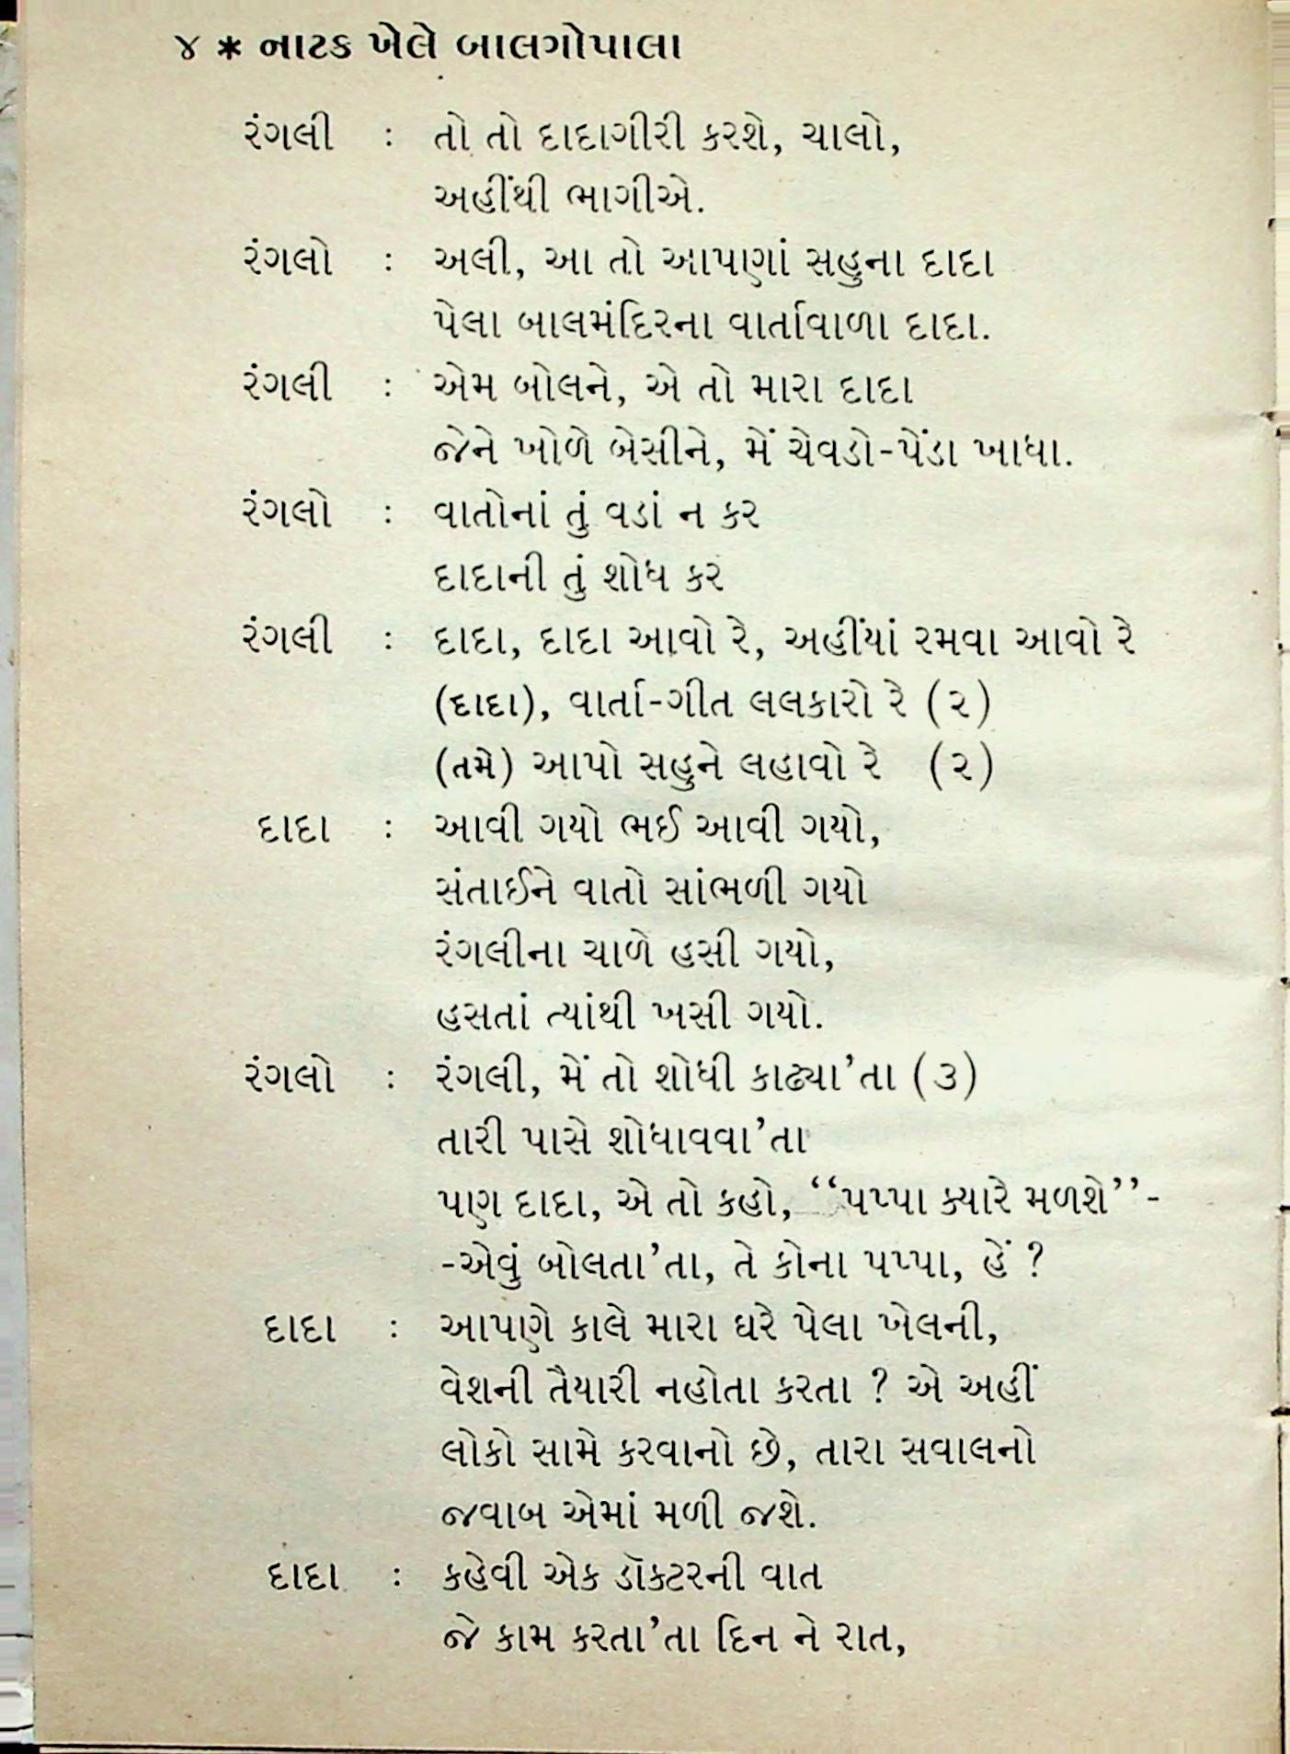 ૪ * નાટક ખેલે બાલગોપાલા
રંગલી : તો તો દાદાગીરી કરશે, ચાલો,
અહીંથી ભાગીએ.
રંગલો : અલી, આ તો આપણાં સહુના દાદા
પેલા બાલમંદિરના વાર્તાવાળા દાદા.
રંગલી : એમ બોલને, એ તો મારા દાદા
જેને ખોળે બેસીને, મેં ચેવડો-પેંડા ખાધા.
રંગલો : વાતોનાં તું વડાં ન કર
દાદાની તું શોધ કર
રંગલી : દાદા, દાદા આવો રે, અહીંયાં રમવા આવો રે
(દાદા), વાર્તા-ગીત લલકારો રે (૨)
(તમે) આપો સહુને લહાવો રે (૨)
દાદા : આવી ગયો ભઈ આવી ગયો,
સંતાઈને વાતો સાંભળી ગયો
રંગલીના ચાળે હસી ગયો,
હસતાં ત્યાંથી ખસી ગયો.
રંગલો : રંગલી, મેં તો શોધી કાઢ્યા'તા (૩)
તારી પાસે શોધાવવા'તા
પણ દાદા, એ તો કહો, ‘‘પપ્પા ક્યારે મળશે’’-
-એવું બોલતા'તા, તે કોના પપ્પા, હેં ?
દાદા : આપણે કાલે મારા ઘરે પેલા ખેલની,
વેશની તૈયારી નહોતા કરતા ? એ અહીં
લોકો સામે કરવાનો છે, તારા સવાલનો
જવાબ એમાં મળી જશે.
દાદા : કહેવી એક ડૉક્ટરની વાત
જે કામ કરતા'તા દિન ને રાત,